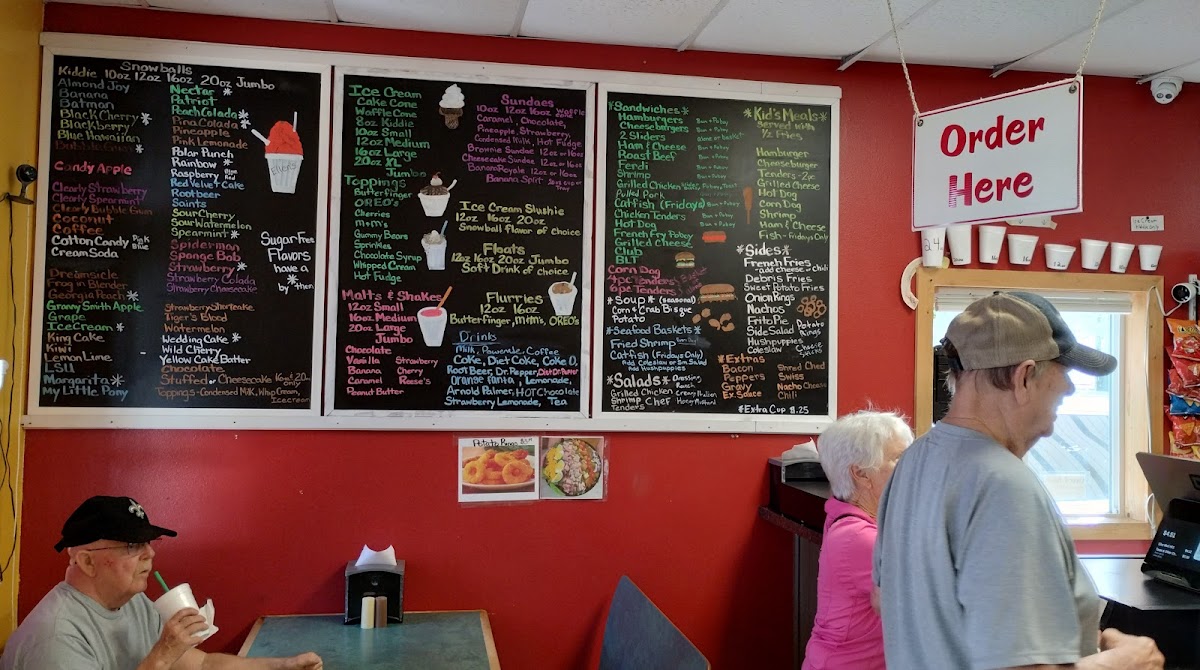 Snowballs
Kiddie 10oz 12oz 16oz 20oz Jumbo
Almond Joy
Banana
Batman
Black Cherry *
Blackberry
Blue Hawaiian
Candy Apple
Clearly Strawberry
Clearly Spearmint
Clearly Bubble Gum
Coconut
Coffee
Cotton Candy Pink Blue
Cream Soda
Dreamsicle
Frog in Blender
Georgia Peach *
Granny Smith Apple
Grape
Ice Cream *
King Cake
Kiwi
Lemon Lime
LSU
Margarita *
My Little Pony
Nectar *
Patriot
Peach Colada *
Pina Colada *
Pineapple
Pink Lemonade
Polar Punch
Rainbow *
Raspberry Blue Red
Red Velvet Cake
Rootbeer
Saints
Sour Cherry
Sour Watermelon
Spearmint *
Spiderman
Sponge Bob
Strawberry *
Strawberry Colada
Strawberry Cheesecake
Strawberry Shortcake
Tiger's Blood
Watermelon
Wedding Cake *
Wild Cherry
Yellow Cake Batter
Chocolate
Stuffed or Cheesecake 16oz & 20oz only
Toppings - Condensed Milk, Whip Cream, Icecream
Sugar Free
Flavors
have a
* by them
Ice Cream
Cake Cone
Waffle Cone
8oz Kiddie
10oz Small
12oz Medium
16oz Large
20oz XL
Jumbo
Toppings
Butterfinger
OREO's
Cherries
M&M's
Gummy Bears
Sprinkles
Chocolate Syrup
Whipped Cream
Hot Fudge
Malts & Shakes
12oz Small
16oz Medium
20oz Large
Jumbo
Chocolate
Vanilla Strawberry
Banana Cherry
Caramel Reese's
Peanut Butter
Sundaes
10oz 12oz 16oz Waffle
Caramel, Chocolate,
Pineapple, Strawberry,
Condensed Milk, Hot Fudge
Brownie Sundae 12oz or 16oz
Cheesecake Sundae 12oz or 16oz
Banana Royale 12oz or 16oz
Banana Split
Ice Cream Slushie
12oz 16oz 20oz
Snowball Flavor of Choice
Floats
12oz 16oz 20oz Jumbo
Soft Drink of Choice
Flurries
12oz 16oz
Butterfinger, M&M's, OREO's
Drinks
Milk, Powerade, Coffee
Coke, Diet Coke, Coke 0,
Root Beer, Dr. Pepper, Diet Dr Pepper
Orange Fanta, Lemonade,
Arnold Palmer, HOT Chocolate
Strawberry Lemonade, Tea
*Sandwiches*
Hamburgers Bun or Poboy
Cheeseburgers Bun or Poboy
2 Sliders
Ham & Cheese
Roast Beef
Ferdi
Shrimp
Grilled Chicken
Pulled Pork
Catfish (Fridays)
Chicken Tenders
Hot Dog
French Fry Poboy
Grilled Cheese
Club
BLT
Corn Dog
4pc Tenders
6pc Tenders
*Soup* (seasonal)
Corn & Crab Bisque
Potato
*Seafood Baskets*
Fried Shrimp
Catfish (Fridays Only)
Add Coleslaw or Sm. Salad
Add Hushpuppies
*Salads* Dressing
Grilled Chicken Ranch
Shrimp Chef Creamy Italian
Tenders Honey Mustard
*Kid's Meals*
Served with
1/2 Fries,
Hamburger
Cheeseburger
Tenders - 2pc
Grilled Cheese
Hot Dog
Corn Dog
Shrimp
Ham & Cheese
Fish - Fridays Only
*Sides*
French Fries
- add cheese or chili
Debris Fries
Sweet Potato Fries
Onion Rings
Nachos
Frito Pie
Side Salad
Hushpuppies
Coleslaw
Potato Rings
Cheese Sticks
*Extras
Bacon
Peppers
Gravy
Ex. Sauce
Shred Ched
Swiss
Nacho Cheese
Chili
*Extra Cup $.25
Order
Here
24
Potato Rings